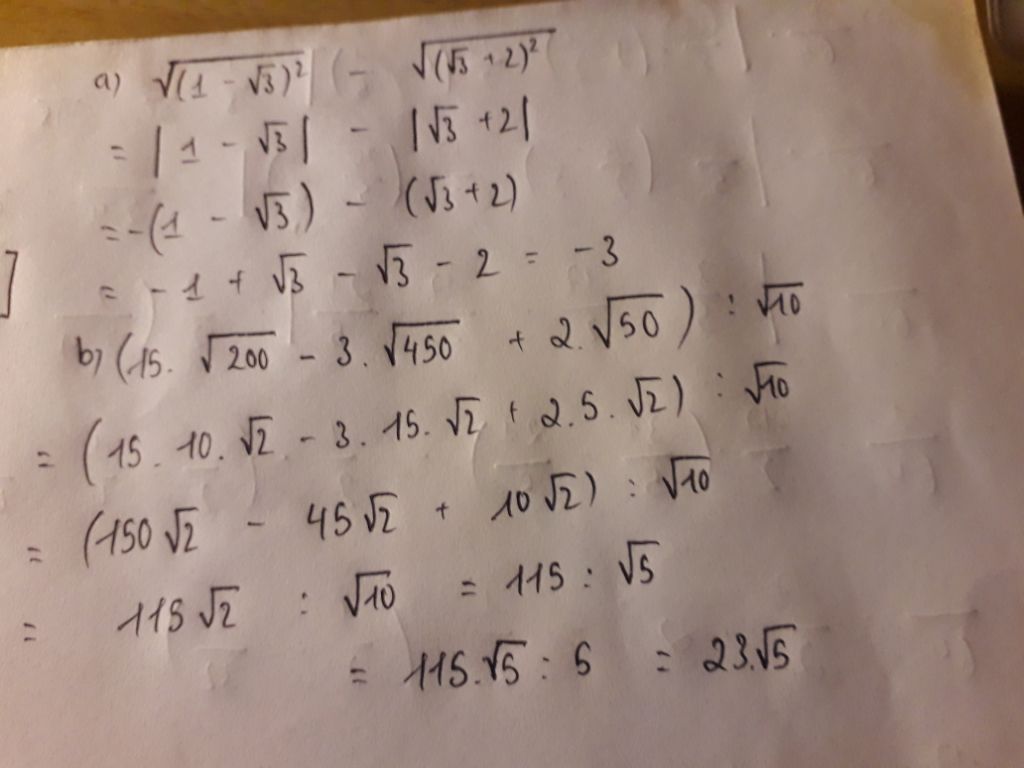 a) √(1 - √3)² - √(√3 + 2)²
= |1 - √3| - |√3 + 2|
= -(1 - √3) - (√3 + 2)
= -1 + √3 - √3 - 2 = -3
b) (15. √200 - 3. √450 + 2. √50) : √10
= (15. 10. √2 - 3. 15. √2 + 2. 5. √2) : √10
= (150 √2 - 45 √2 + 10 √2) : √10
= 115 √2 : √10 = 115 : √5
= 115. √5 : 5 = 23. √5